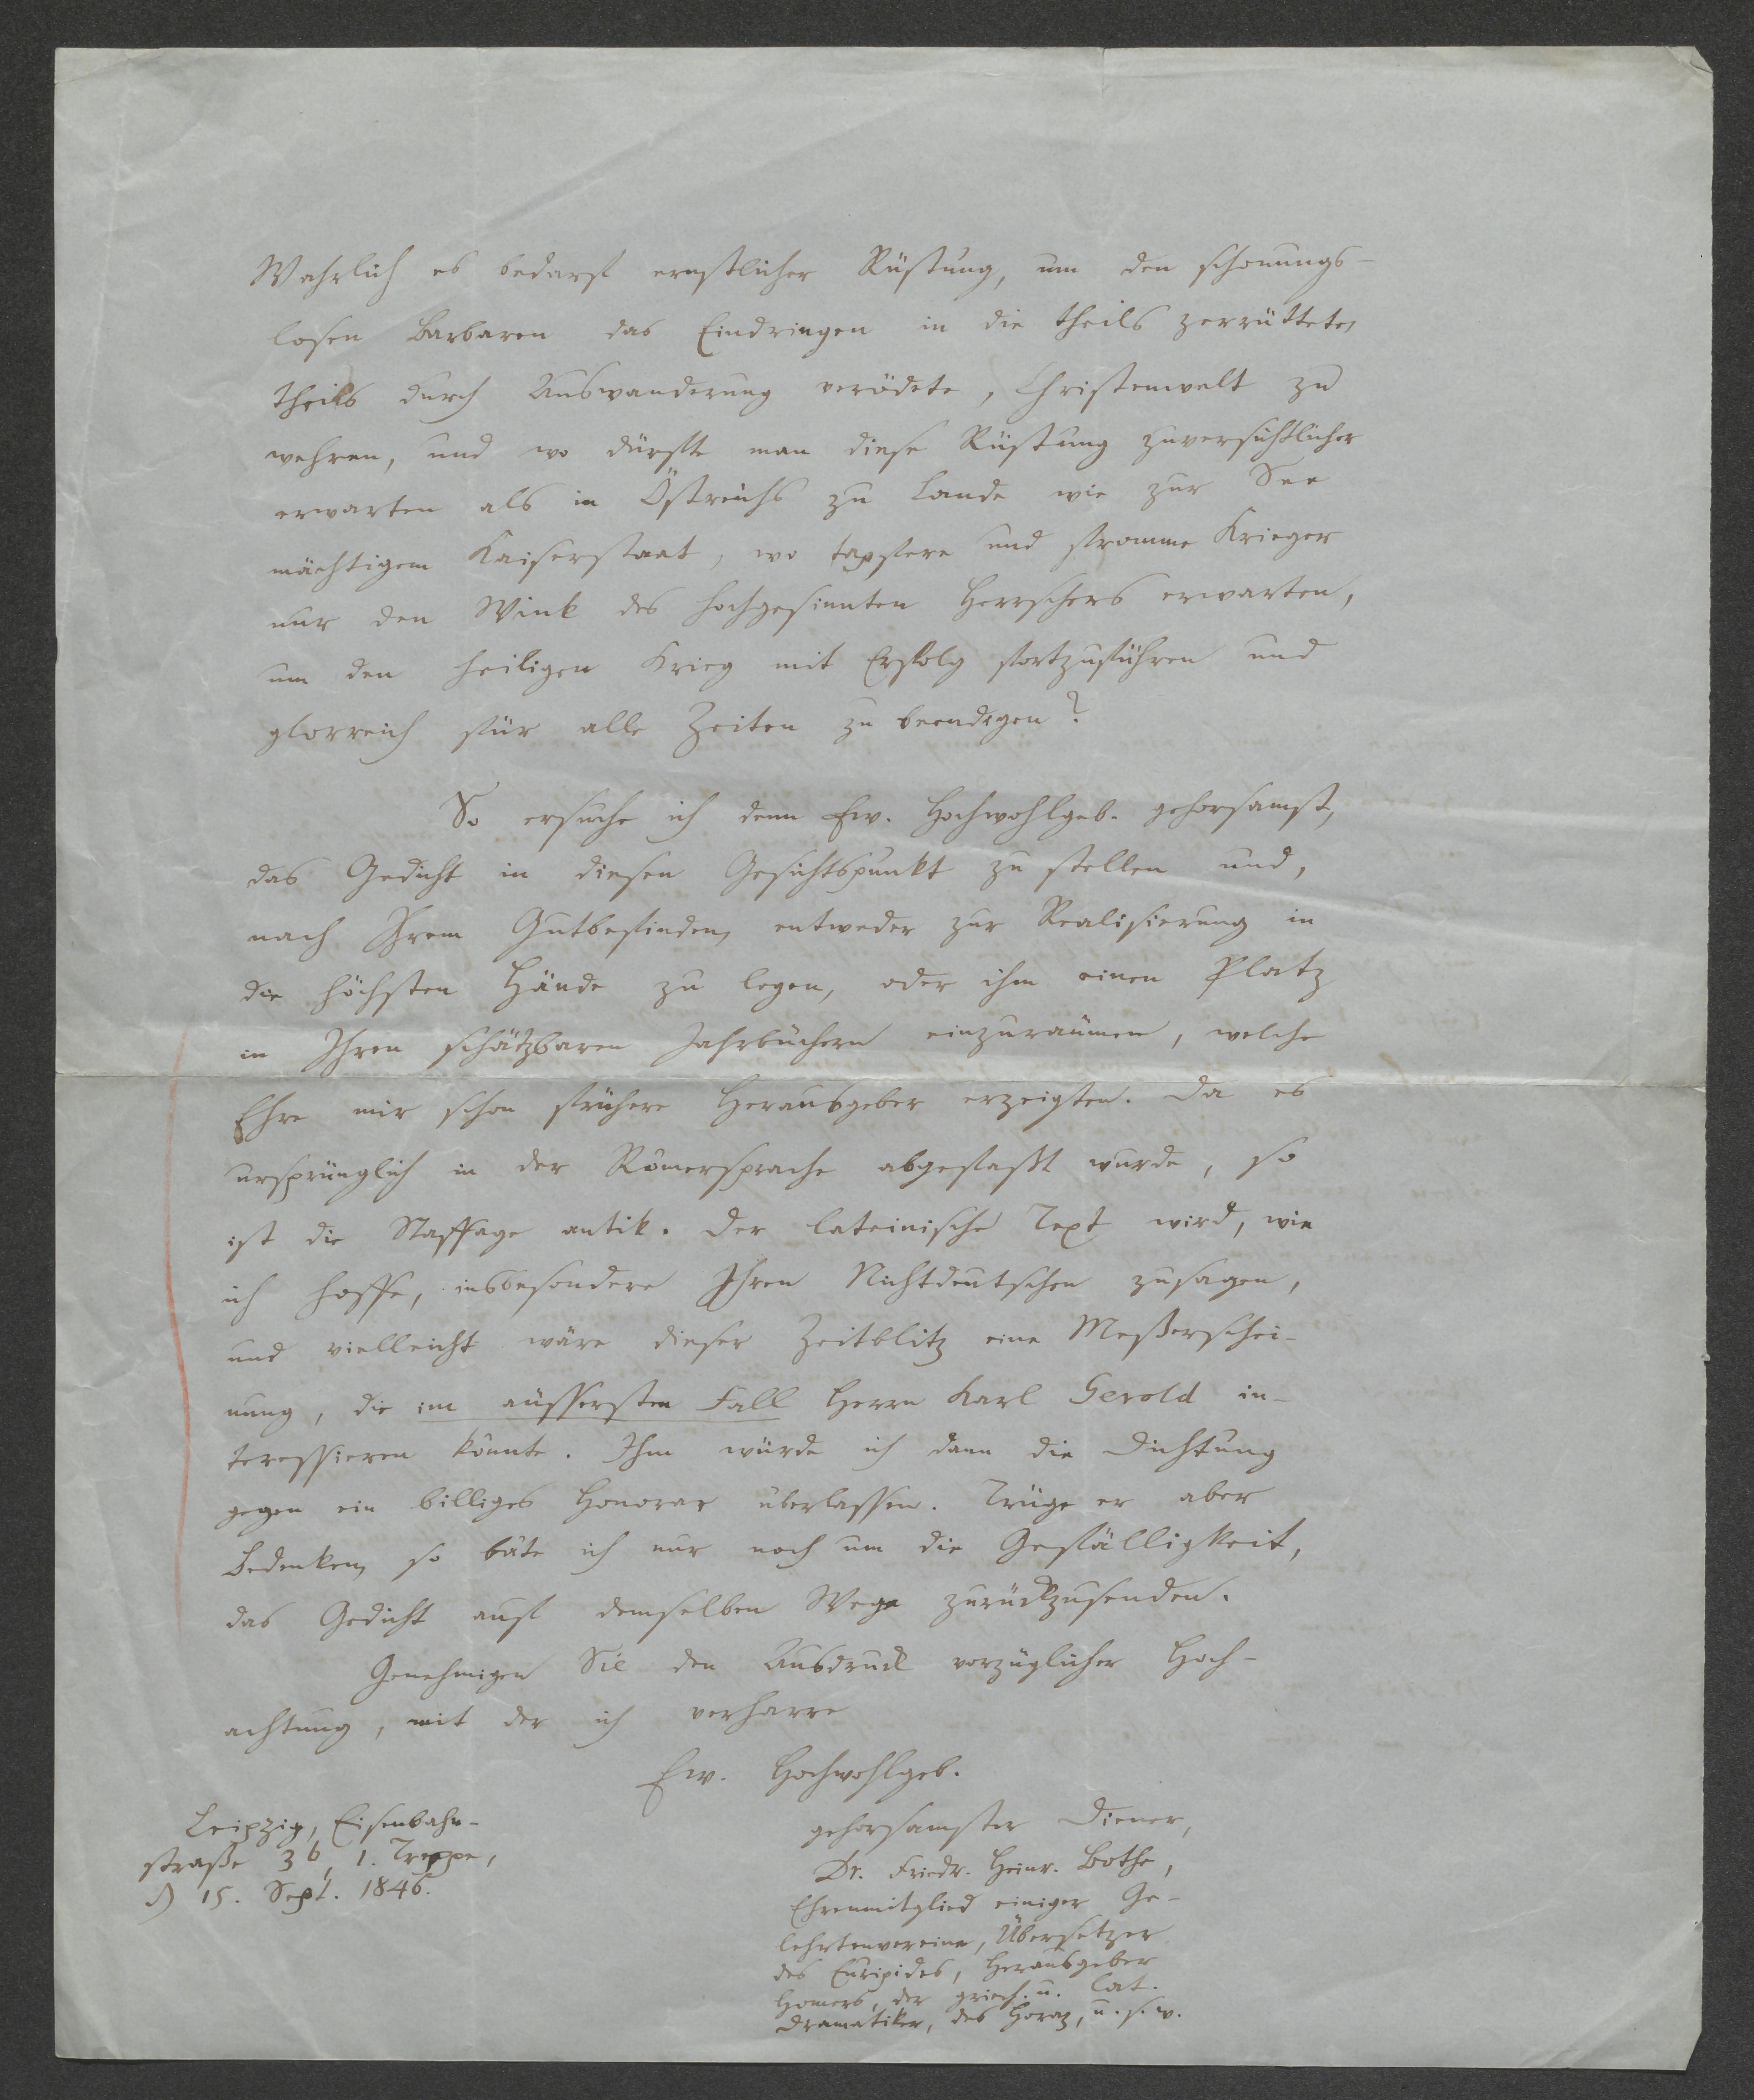 Wahrlich es bedarf ernstlicher Rüstung, um den schonungs-
losen Barbaren das Eindringen in die theils zerrüttete,
theils durch Auswanderung verödete, Christenwelt zu
wehren, und wo dürfte man diese Rüstung zuversichtlicher
erwarten als in Östreichs zu Lande wie zur See
mächtigem Kaiserstaat, wo tapfere und fromme Krieger
nur den Wink des hochgesinnten Herrschers erwarten,
um den heiligen Krieg mit Erfolg fortzuführen und
glorreich für alle Zeiten zu beendigen?
So ersuche ich denn Ew. Hochwohlgeb. gehorsamst,
das Gedicht in diesen Gesichtspunkt zu stellen und,
nach Ihrem Gutbefinden, entweder zur Realisierung in
die höchsten Hände zu legen, oder ihm einen Platz
in Ihren schätzbaren Jahrbüchern einzuräumen, welche
Ehre mir schon frühere Herausgeber erzeigten. Da es
ursprünglich in der Römersprache abgefaßt wurde, so
ist die Staffage antik. Der lateinische Text wird, wie
ich hoffe, insbesondere Ihren Nichtdeutschen zusagen,
und vielleicht wäre dieser Zeitblitz eine Meßerschei-
nung, die im äussersten Fall Herrn Karl Gerold in-
teressieren könnte. Ihm würde ich dann die Dichtung
gegen ein billiges Honorar überlassen. Trüge er aber
Bedenken, so bäte ich nur noch um die Gefälligkeit,
das Gedicht auf demselben Wege zurückzusenden.
Genehmigen Sie den Ausdruck vorzüglicher Hoch-
achtung, mit der ich verharre
Ew. Hochwohlgeb.
gehorsamster Diener,
Dr. Friedr. Heinr. Bothe,
Ehrenmitglied einiger Ge-
lehrtenvereine, Übersetzer
des Euripides, Herausgeber
Homers, der griech. u. lat.
Dramatiker, des Horaz, u. s. w.
Leipzig, Eisenbahn-
straße 3b, 1. Treppe,
d 15. Sept. 1846.